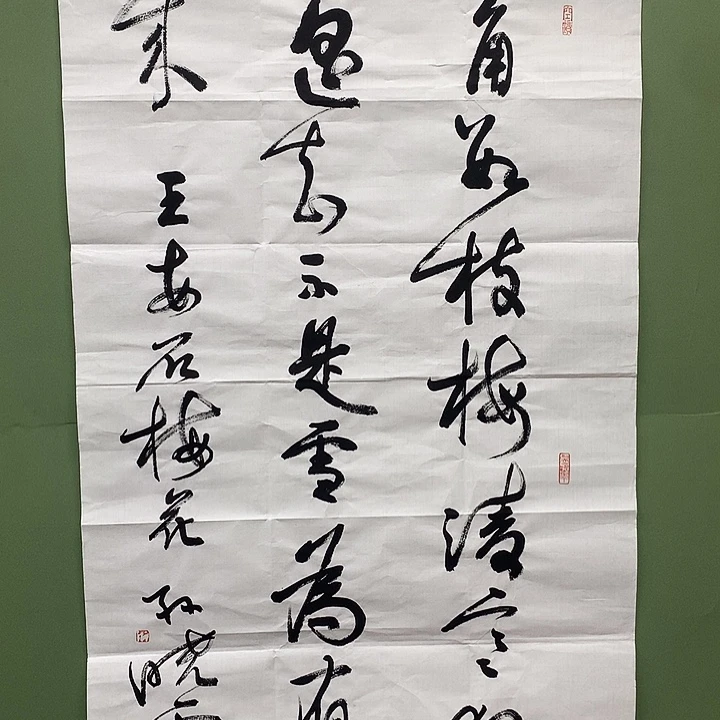 角数枝梅凌寒
遥知不是雪為有
来 王安石梅花 孙晓